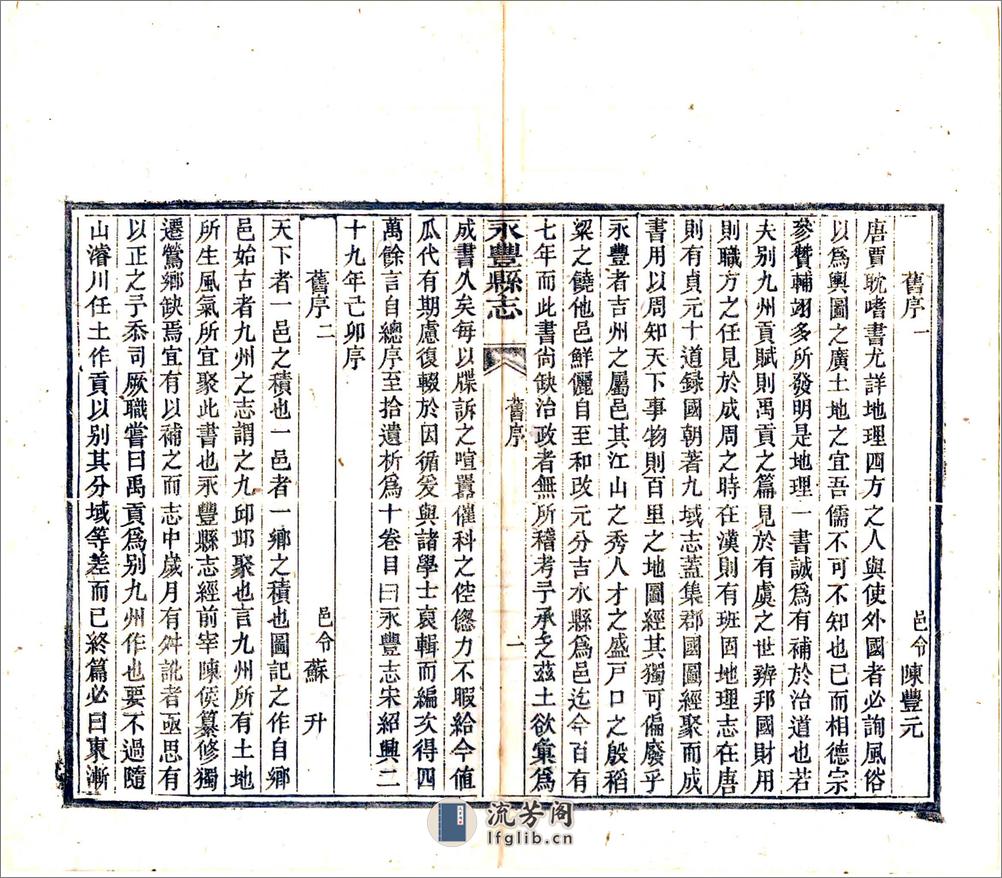 舊序一
邑令陳豐元
唐賈耽嗜書尤詳地理四方之人與使外國者必詢風俗
以爲輿圖之廣土地之宜吾儒不可不知也已而相德宗
參贊輔翊多所發明是地理一書誠爲有補於治道也若
夫別九州貢賦則禹貢之篇見於有虞之世辨邦國財用
則職方之任見於成周之時在漢則有班固地理志在唐
則有貞元十道錄國朝著九域志蓋集郡國圖經聚而成
書用以周知天下事物則百里之地圖經其獨可偏廢乎
永豐者吉州之屬邑其江山之秀人才之盛戸口之殷稻
粱之饒他邑鮮儷自至和改元分吉水縣爲邑迄今百有
七年而此書尚缺治政者無所稽考予承乏茲土欲彙爲
永豐縣志
舊序
一
成書久矣每以牒訴之喧囂催科之倥傯力不暇給今値
瓜代有期慮復輟於因循爰與諸學士裒輯而編次得四
萬餘言自總序至拾遺析爲十卷目曰永豐志宋紹興二
十九年己卯序
舊序二
邑令蘇升
天下者一邑之積也一邑者一鄉之積也圖記之作自鄉
邑始古者九州之志謂之九邱邱聚也言九州所有土地
所生風氣所宜聚此書也永豐縣志經前宰陳侯纂修獨
遷鶯鄉缺焉宜有以補之而志中歲月有舛訛者亟思有
以正之予忝司厥職嘗曰禹貢爲別九州作也要不過隨
山濬川任土作貢以別其分域等差而已終篇必曰東漸
流芳阁
lfglib.cn